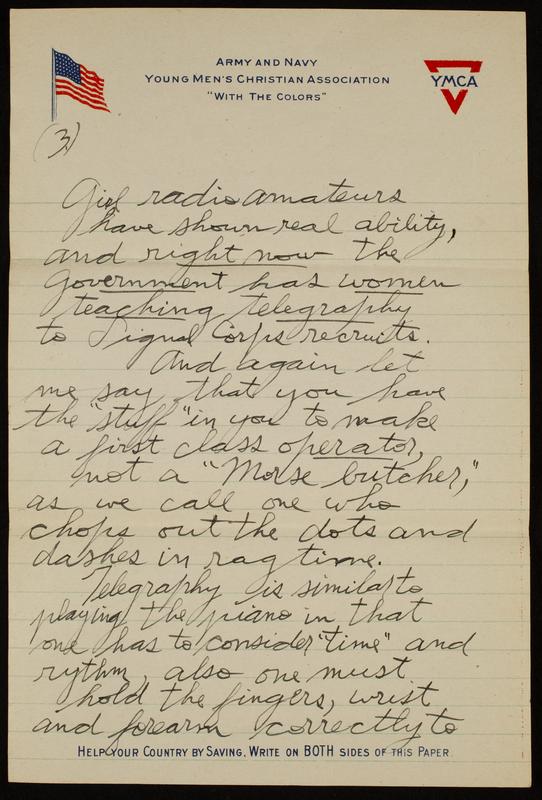 ARMY AND NAVY
YOUNG MEN'S CHRISTIAN ASSOCIATION
"WITH THE COLORS"
YMCA
(3)
Girl radio amateurs
have shown real ability,
and right now the
Government has women
teaching telegraphy
to Signal Corps recruits.
And again let
me say that you have
the "stuff" in you to make
a first class operator,
not a "Morse butcher,"
as we call one who
chops out the dots and
dashes in rag time.
Telegraphy is similar to
playing the piano in that
one has to consider "time" and
rythm, also one must
hold the fingers, wrist
and forearm correctly to
HELP YOUR COUNTRY BY SAVING. WRITE ON BOTH SIDES OF THIS PAPER